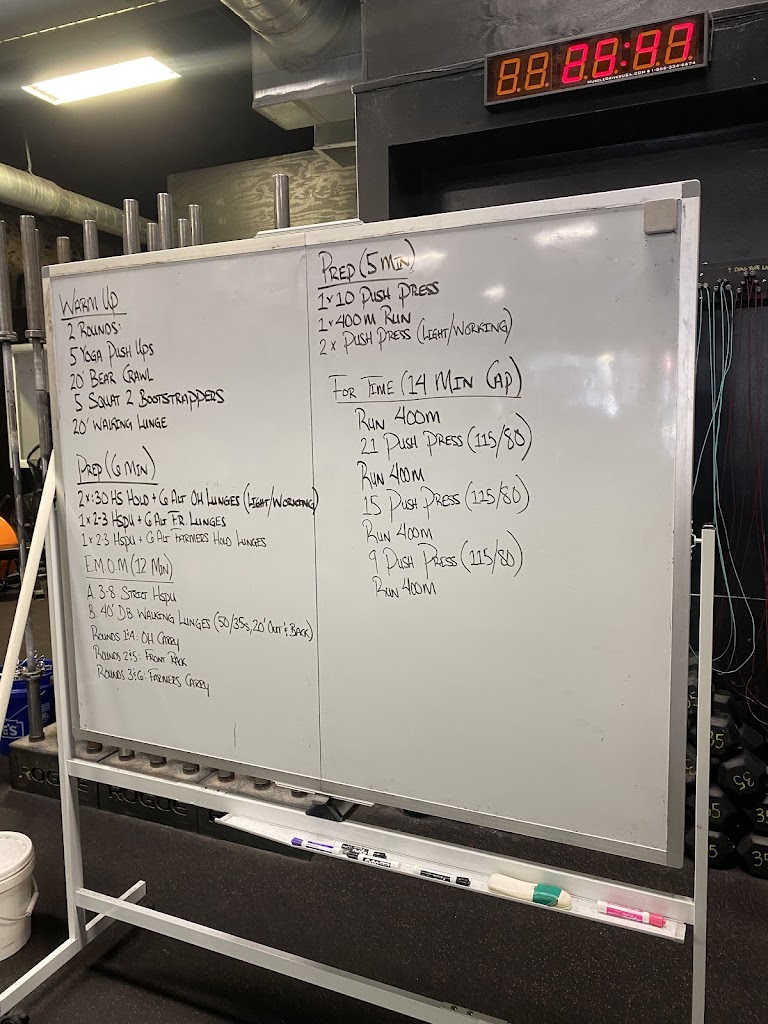 WARM UP
2 ROUNDS:
5 YOGA PUSH UPS
20' BEAR CRAWL
5 SQUAT 2 BOOTSTRAPPERS
20' WALKING LUNGE
PREP (6 MIN)
2x :30 HS HOLD + 6 ALT OH LUNGES (LIGHT/WORKING)
1x 2-3 HSPU + 6 ALT FR. LUNGES
1x 2-3 HSPU + 6 ALT FARMERS HOLD LUNGES
E.M.O.M (12 MIN)
A. 3-8 STRICT HSPU
B. 40' D.B. WALKING LUNGES (50/35s, 20' OUT & BACK)
ROUNDS 1&4: OH CARRY
ROUNDS 2&5: FRONT RACK
ROUNDS 3&6: FARMERS CARRY
PREP (5 MIN)
1x10 PUSH PRESS
1x400m RUN
2x PUSH PRESS (LIGHT/WORKING)
FOR TIME (14 MIN CAP)
RUN 400M
21 PUSH PRESS (115/80)
RUN 400M
15 PUSH PRESS (115/80)
RUN 400M
9 PUSH PRESS (115/80)
RUN 400M
ROGUE
ROGUE
35
35